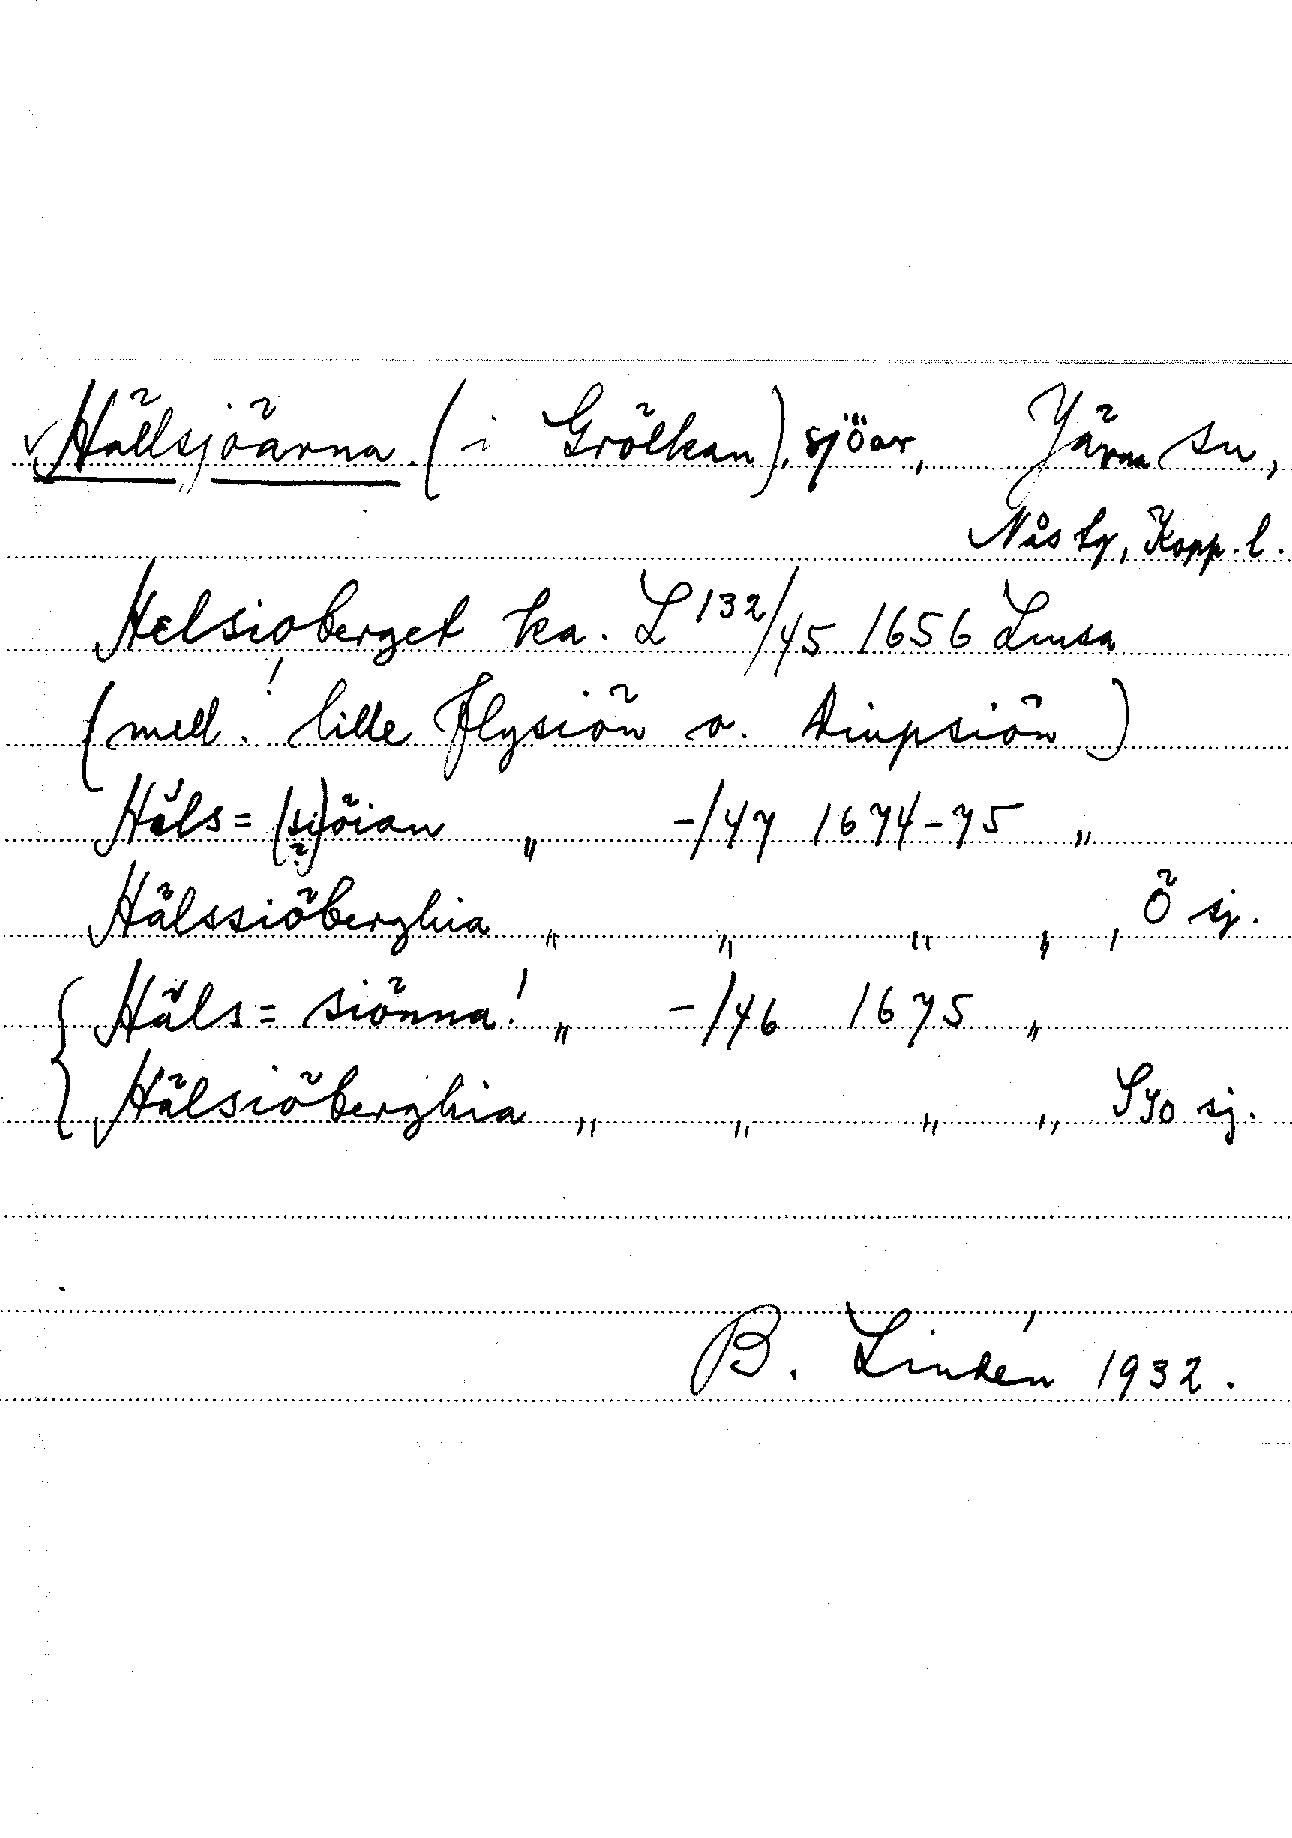 Hällsjöarna. (i Grölkan), sjöar, Järna sn,
Nås tg, Kopp. l.
Helsioberget ka. L 132/45 1656 Lmsa
(mell. ! lille Flysiön o. Diupsiön)
Häls= (si)öian „ -/47 1674-75 „
?
Hälssiöberghia „ „ „ „ , Ö sj.
Häls= siönna! „ -/46 1675 „
Hälsiöberghia „ „ „ „ Syo sj.
B. Lindén 1932.